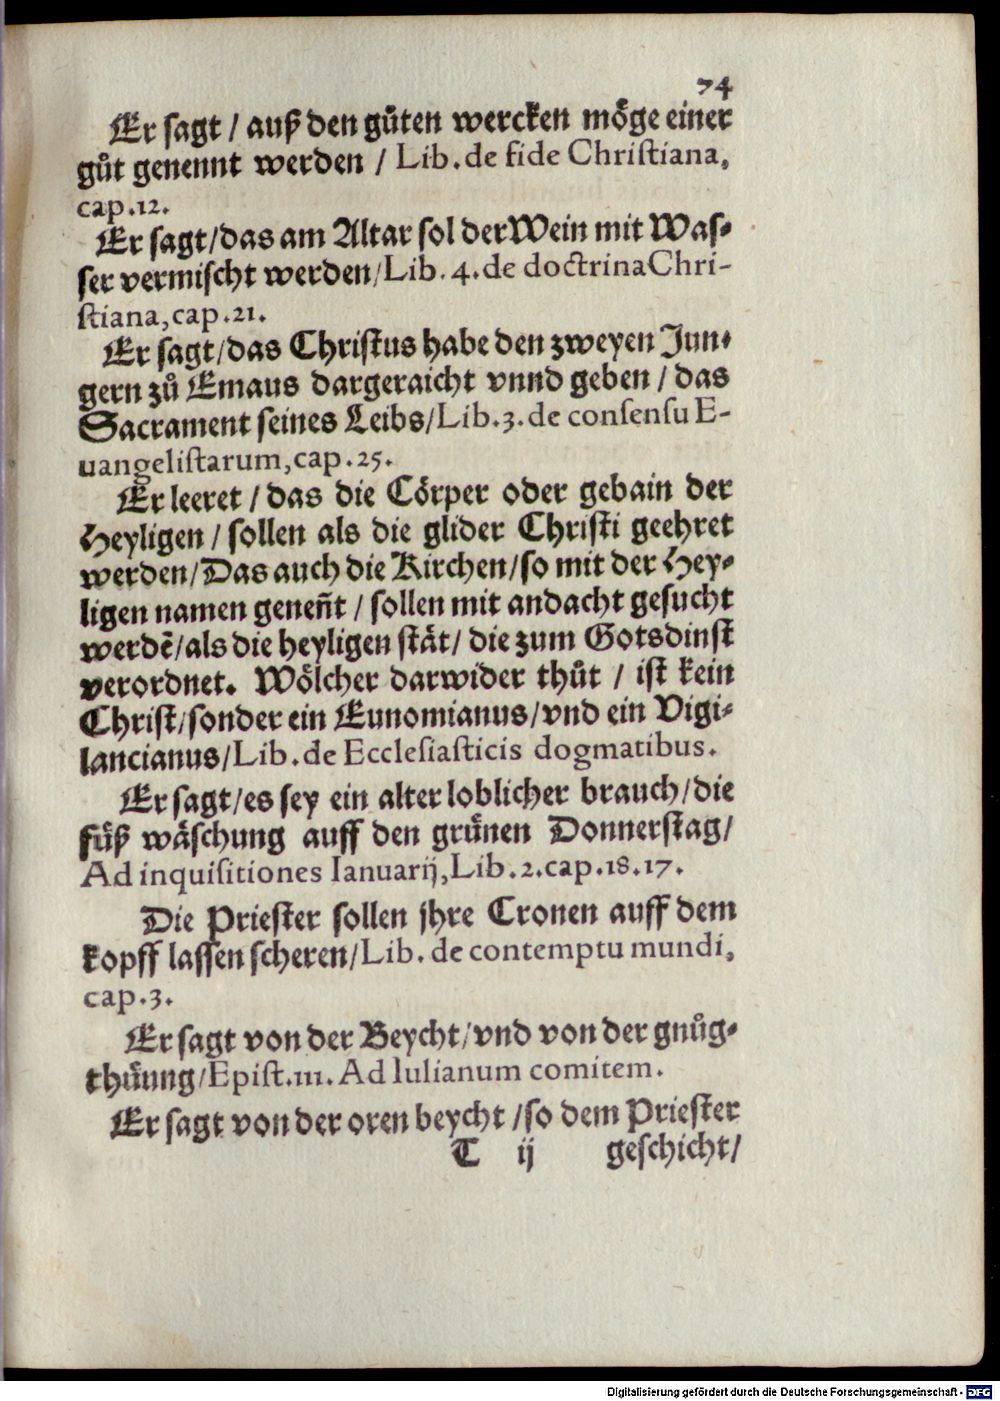 74
Er sagt / auß den gůten wercken mög̈e einer
gůt genennt werden / Lib. de fide Christiana,
cap.12.
Er sagt/das am Altar sol der Wein mit Was⸗
ser vermischt werden/Lib. 4. de doctrina Chri-
stiana,cap.21.
Er sagt/das Christus habe den zweyen Jun⸗
gern zů Emaus dargeraicht vnnd geben / das
Sacrament seines Leibs/Lib.3.de consensu E-
uangelistarum,cap.25.
Er leeret / das die Cörper oder gebain der
Heyligen / sollen als die glider Christi geehret
werden/Das auch die Kirchen/so mit der Hey⸗
ligen namen geneñt / sollen mit andacht gesucht
werdẽ/als die heyligen stät/ die zum Gotsdinst
verordnet. Wölcher darwider thůt / ist kein
Christ/sonder ein Eunomianus/vnd ein Vigi⸗
lancianus/Lib.de Ecclesiasticis dogmatibus.
Er sagt/es sey ein alter loblicher brauch/die
fůß wäschung auff den grůnen Donnerstag/
Ad inquisitiones Ianuarij,Lib.2.cap.18.17.
Die Priester sollen jhre Cronen auff dem
kopff lassen scheren/Lib. de contemptu mundi,
cap.3.
Er sagt von der Beycht/vnd von der gnůg⸗
thůung/Epist.111. Ad Iulianum comitem.
Er sagt von der oren beycht /so dem Priester
T ij geschicht/
Digitalisierung gefördert durch die Deutsche Forschungsgemeinschaft - DFG